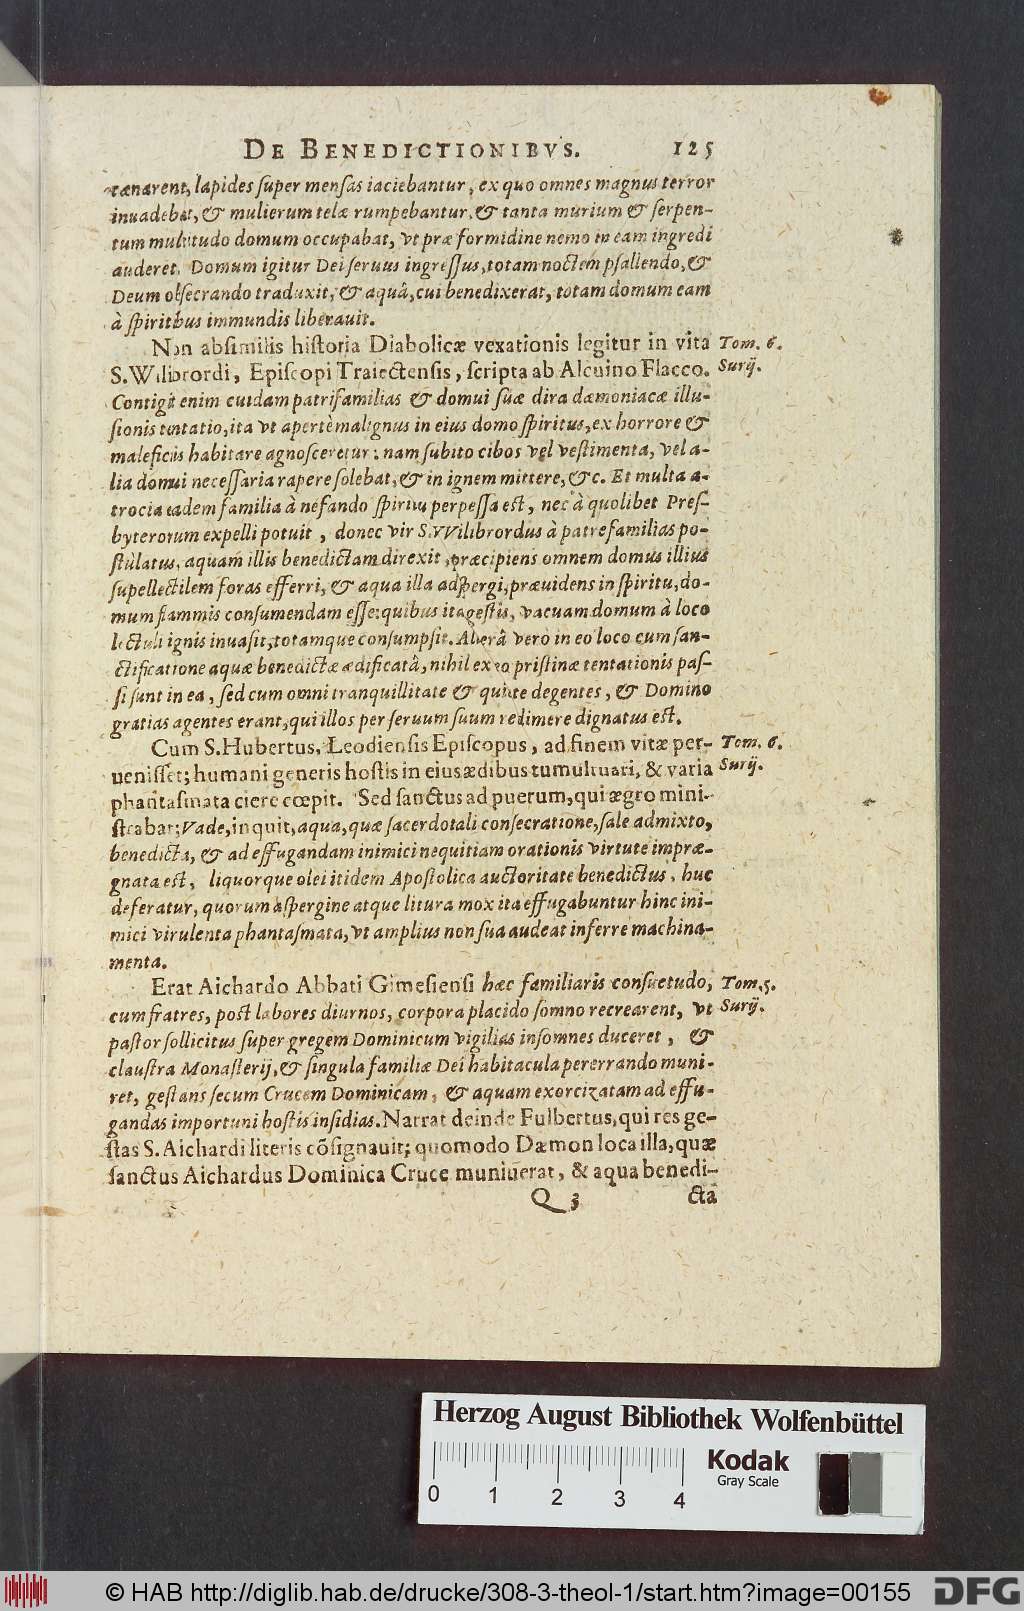 DE BENEDICTIONIBVS. 125
cænarent, lapides super mensas iaciebantur, ex quo omnes magnus terror
inuadebat, & mulierum telæ rumpebantur, & tanta murium & serpen-
tum multitudo domum occupabat, vt præ formidine nemo in eam ingredi
auderet. Domum igitur Dei seruus ingressus, totam noctem psallendo, &
Deum obsecrando traduxit, & aquâ, cui benedixerat, totam domum eam
à spiritibus immundis liberauit.
Non absimilis historia Diabolicæ vexationis legitur in vita Tom. 6.
S. Wilibrordi, Episcopi Traiectensis, scripta ab Alcuino Flacco. Surij.
Contigit enim cuidam patrifamilias & domui suæ dira dæmoniacæ illu-
sionis tentatio, ita vt apertè malignus in eius domo spiritus, ex horrore &
maleficiis habitare agnosceretur: nam subito cibos vel vestimenta, vel a-
lia domui necessaria rapere solebat, & in ignem mittere, &c. Et multa a-
trocia eadem familia à nefando spiritu perpessa est, nec à quolibet Pres-
byterorum expelli potuit, donec vir S. VVilibrordus à patrefamilias po-
stulatus, aquam illis benedictam direxit, præcipiens omnem domus illius
supellectilem foras efferri, & aqua illa adspergi, præuidens in spiritu, do-
mum flammis consumendam esse: quibus ita gestis, vacuam domum à loco
lectuli ignis inuasit, totamque consumpsit. Alterâ verò in eo loco cum san-
ctificatione aquæ benedictæ ædificatâ, nihil ex eo pristinæ tentationis pas-
si sunt in ea, sed cum omni tranquillitate & quiete degentes, & Domino
gratias agentes erant, qui illos per seruum suum redimere dignatus est.
Cum S. Hubertus, Leodiensis Episcopus, ad finem vitæ per- Tom. 6.
uenisset; humani generis hostis in eius ædibus tumultuari, & varia Surij.
phantasmata ciere cœpit. Sed sanctus ad puerum, qui ægro mini-
strabat; Vade, inquit, aqua, quæ sacerdotali consecratione, sale admixto,
benedicta, & ad effugandam inimici nequitiam orationis virtute impræ-
gnata est, liquorque olei itidem Apostolica auctoritate benedictus, huc
deferatur, quorum aspergine atque litura mox ita effugabuntur hinc ini-
mici virulenta phantasmata, vt amplius non sua audeat inferre machina-
menta.
Erat Aichardo Abbati Gimesiensi hæc familiaris consuetudo, Tom. 5.
cum fratres, post labores diurnos, corpora placido somno recrearent, vt Surij.
pastor sollicitus super gregem Dominicum vigilias insomnes duceret, &
claustra Monasterij, & singula familiæ Dei habitacula pererrando muni-
ret, gestans secum Crucem Dominicam, & aquam exorcizatam ad effu-
gandas importuni hostis insidias. Narrat deinde Fulbertus, qui res ge-
stas S. Aichardi literis cõsignauit; quomodo Dæmon loca illa, quæ
sanctus Aichardus Dominica Cruce muniuerat, & aqua benedi-
Q 3 cta
Herzog August Bibliothek Wolfenbüttel
Kodak
Gray Scale
0 1 2 3 4
© HAB http://diglib.hab.de/drucke/308-3-theol-1/start.htm?image=00155
DFG